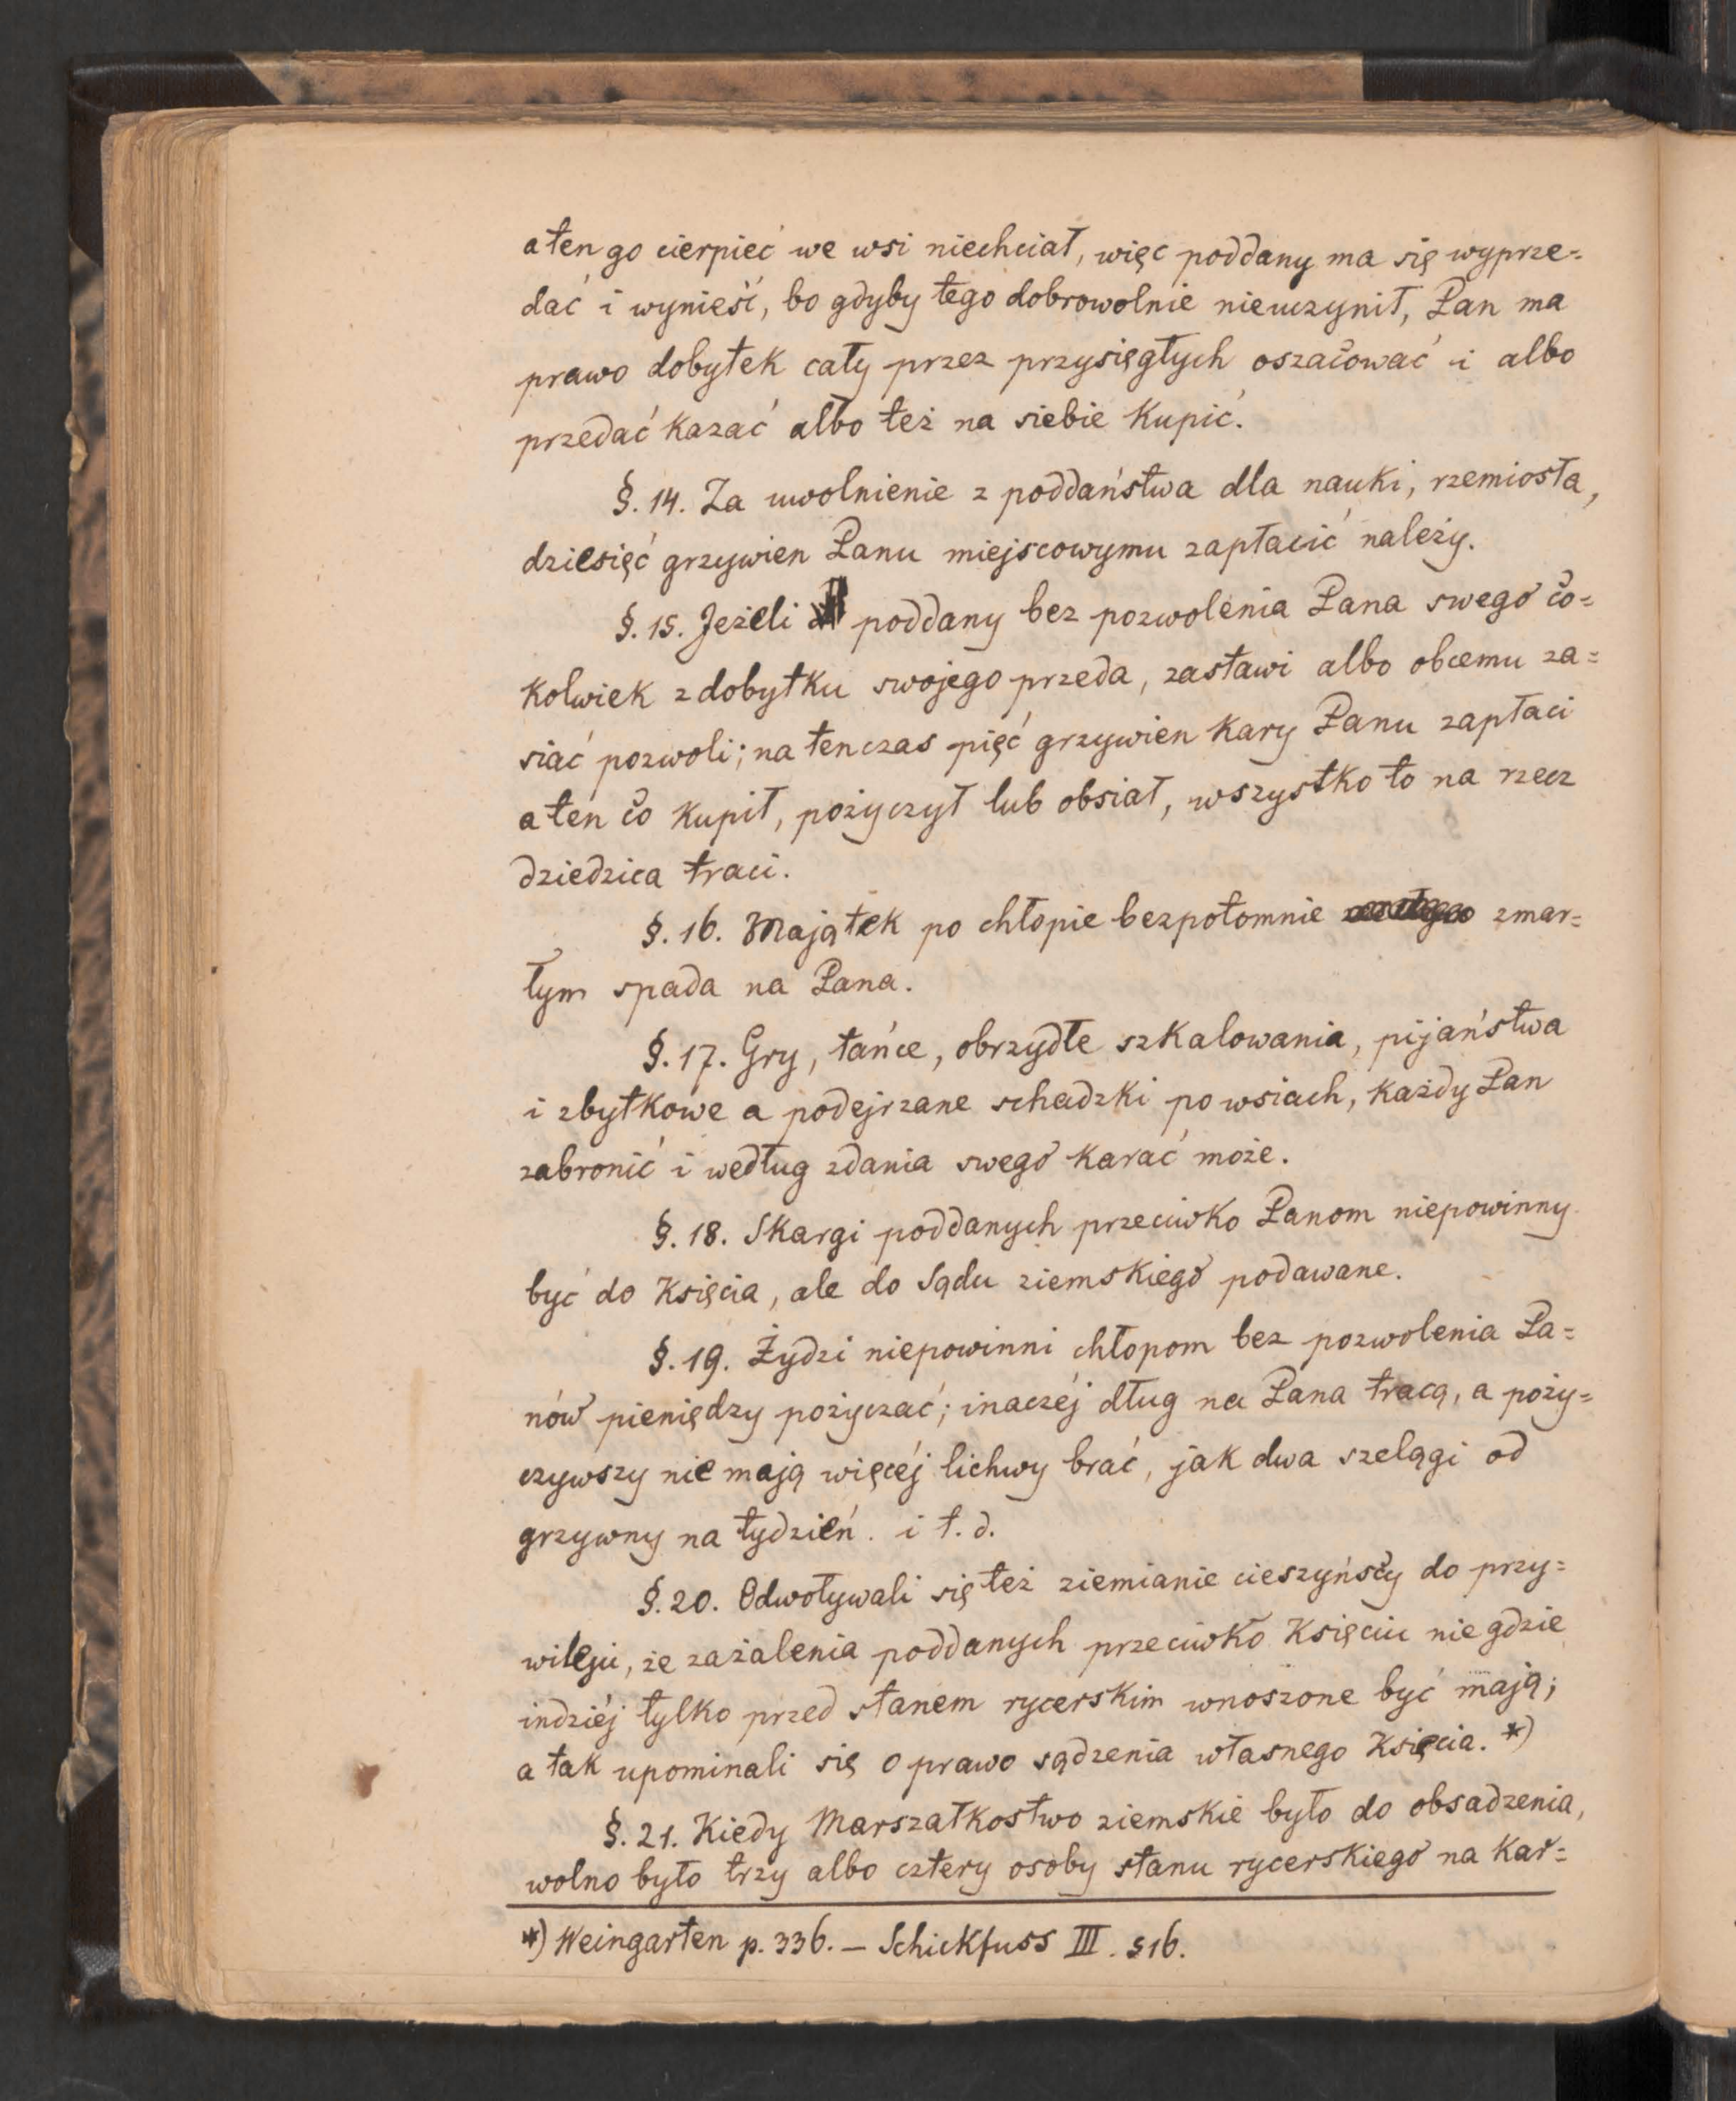 a ten go cierpieć we wsi niechciał, więc poddany ma się wyprze=
dać i wynieść, bo gdyby tego dobrowolnie nieuczynił, Pan ma
prawo dobytek cały przez przysięgłych oszacować i albo
przedać kazać albo też na siebie kupić.
§. 14. Za uwolnienie z poddaństwa dla nauki, rzemiosła,
dziesięć grzywien Panu miejscowymu zapłacić należy.
§. 15. Jeżeli poddany bez pozwolenia Pana swego co=
kolwiek z dobytku swojego przeda, zastawi albo obcemu za=
siać pozwoli; na tenczas pięć grzywien kary Panu zapłaci
a ten co kupił, pożyczył lub obsiał, wszystko to na rzecz
dziedzica traci.
§. 16. Majątek po chłopie bezpotomnie zmar=
łym spada na Pana.
§. 17. Gry, tańce, obrzydłe szkalowania, pijaństwa
i zbytkowe a podejrzane schadzki po wsiach, każdy Pan
zabronić i według zdania swego karać może.
§. 18. Skargi poddanych przeciwko Panom niepowinny
być do Księcia, ale do Sądu ziemskiego podawane.
§. 19. Żydzi niepowinni chłopom bez pozwolenia Pa=
nów pieniędzy pożyczać; inaczéj dług na Pana tracą, a poży=
czywszy nie mają więcéj lichwy brać, jak dwa szelągi od
grzywny na tydzień. i t. d.
§. 20. Odwoływali się też ziemianie cieszyńscy do przy=
wileju, że zażalenia poddanych przeciwko Księciu nie gdzie
indziéj tylko przed stanem rycerskim wnoszone być mają;
a tak upominali się o prawo sądzenia własnego Księcia. *)
§. 21. Kiedy Marszałkostwo ziemskie było do obsadzenia,
wolno było trzy albo cztery osoby stanu rycerskiego na kar=
*) Weingarten p. 336. — Schickfuss III. 516.